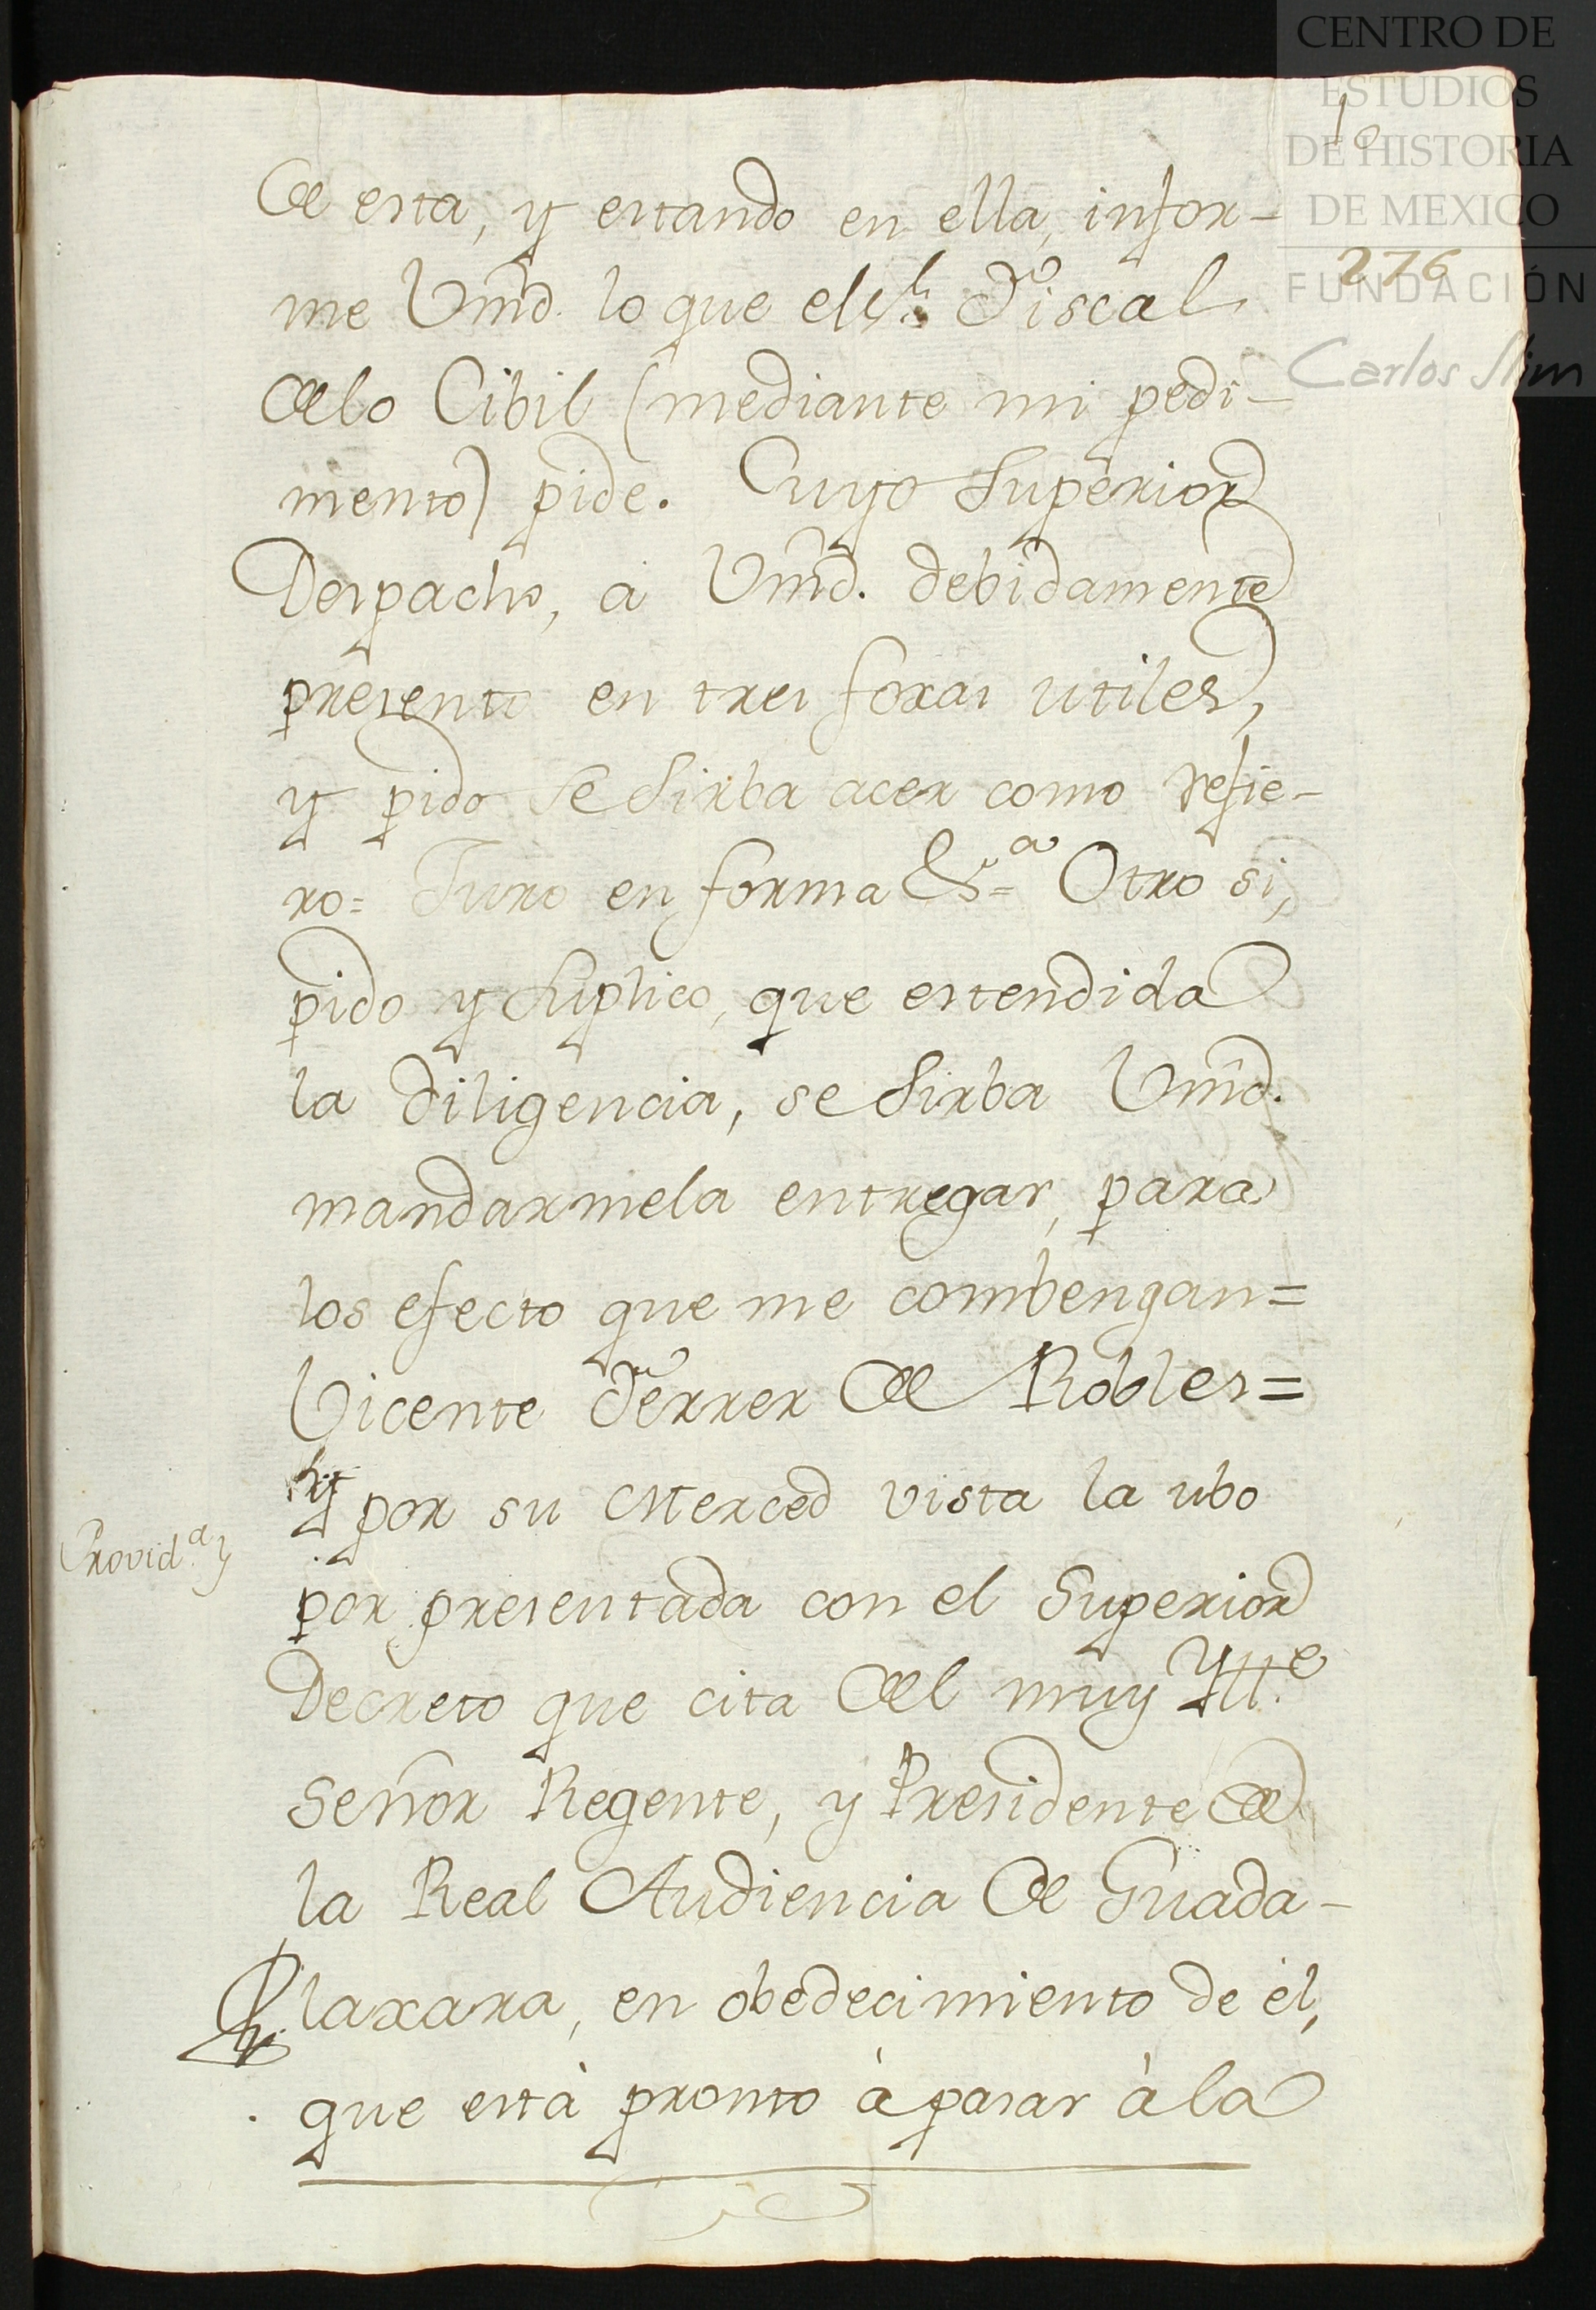 CENTRO DE
ESTUDIOS
DE HISTORIA
DE MEXICO
FUNDACIÓN
Carlos Slim
10
276
de esta, y estando en ella, infor-
me Vmd. lo que el Sr. Fiscal
de lo Cibil (mediante mi pedi-
mento) pide. Cuyo Superior
Despacho, a Vmd. debidamente
presento en tres foxas utiles,
y pido se Sirba acer como refie-
ro= Juro en forma &ª= Otro si,
pido y Suplico, que estendida
la diligencia, se Sirba Vmd.
mandarmela entregar, para
los efecto que me combengan=
Vicente Ferrer de Robles=
Provid.ª
y por su Merced vista la ubo
por presentada con el Superior
Decreto que cita del muy Ytt.e
Señor Regente, y Presidente de
la Real Audiencia de Guada-
laxara, en obedecimiento de él,
que està pronto à pasar à la